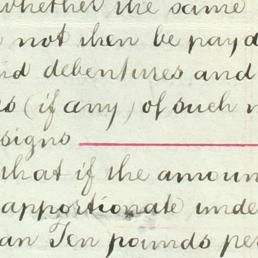 whether the same
not then be payd
id debentures and
s (if any) of such
signs
that if the amoun
apportionate unde
an Ten pounds per